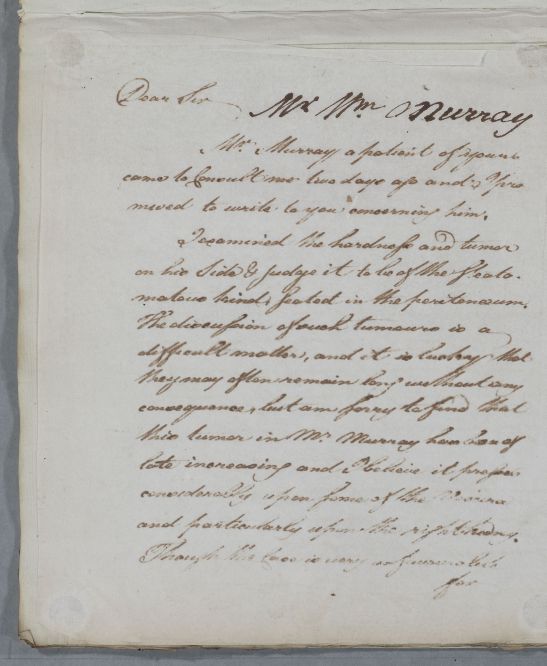 Dear Sir Mr. Wm. Murray
Mr. Murray a patient of yours
came to Consult me two days ago and I pro
mised to write to you concerning him.
I examined the hardness and tumor
on his Side & judge it to be of the Steato-
matous kind, seated in the peritonæum.
The discussion of such tumours is a
difficult matter, and it is lucky that
they may often remain long without any
consequence, but am sorry to find that
this tumor in Mr. Murray has been of
late increasing and I believe it presses
considerably upon some of the Viscera
and particularly upon the right kidney.
Though the Case is very unfavourable
for